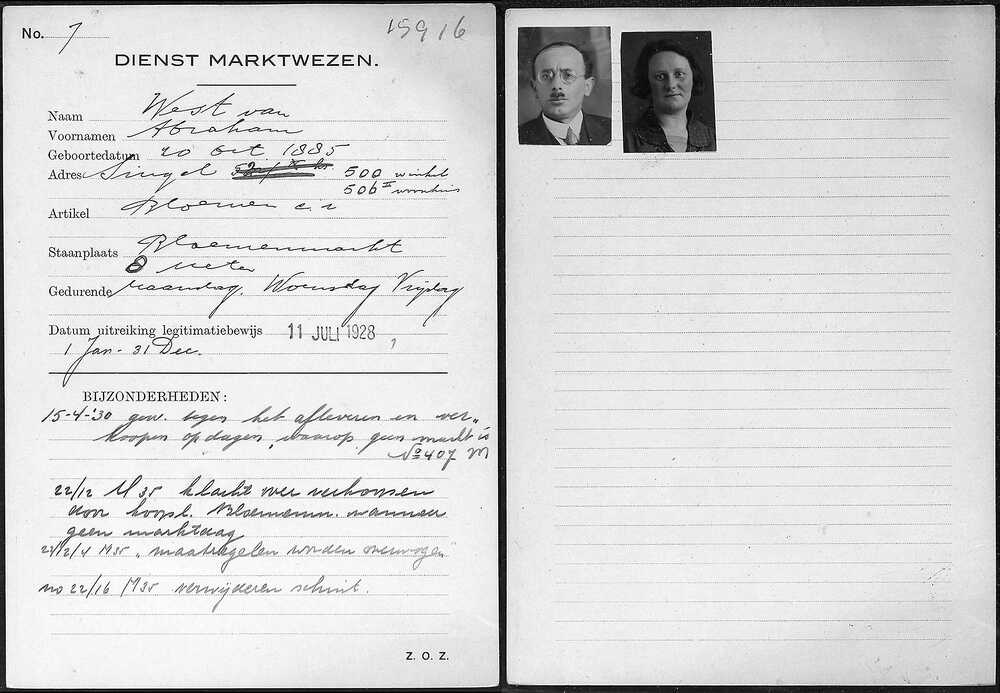 No. 7
15916
DIENST MARKTWEZEN.
Naam West van
Voornamen Abraham
Geboortedatum 20 Oct 1885
Adres Singel 500 winkel
506 II woonhuis
Artikel Bloemen e.a
Staanplaats Bloemenmarkt
8 Meter
Gedurende Maandag, Woensdag Vrijdag
Datum uitreiking legitimatiebewijs 11 JULI 1928
1 Jan - 31 Dec.
BIJZONDERHEDEN:
15-4-'30 gew. tegen het afleveren en ver-
koopen op dagen, waarop geen markt is
No 407 M
22/12 M 35 klacht over verkoopen
door koopl. Bloemenm. wanneer
geen marktdag
22/2/4 M35 „maatregelen worden overwogen"
no 22/16 M35 verwijderen schut.
Z. O. Z.